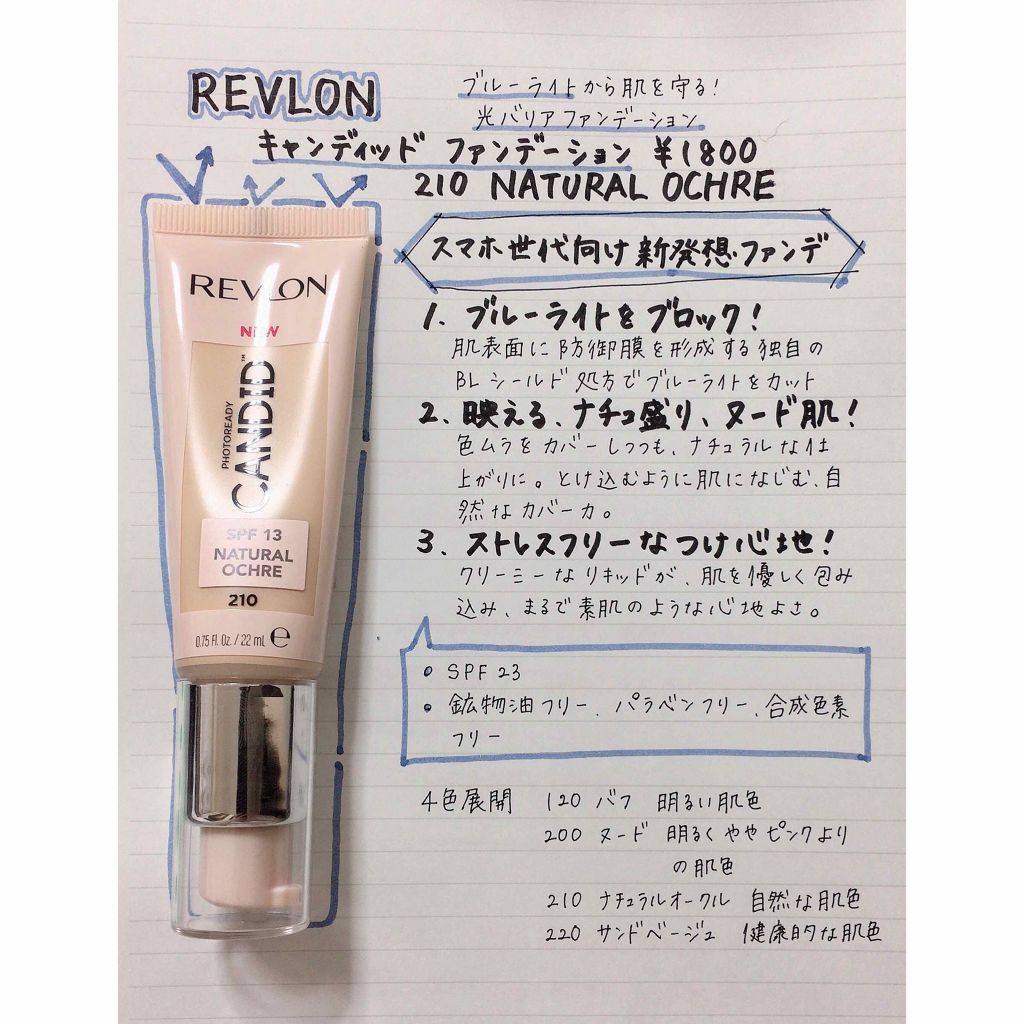 REVLON
ブルーライトから肌を守る!
光バリアファンデーション
キャンディッド ファンデーション ¥1800
210 NATURAL OCHRE
スマホ世代向け新発想ファンデ
1. ブルーライトをブロック!
肌表面に防御膜を形成する独自の
BLシールド処方でブルーライトをカット
2、映える、ナチュ盛り、ヌード肌!
色ムラをカバーしつつも、ナチュラルな仕
上がりに。とけ込むように肌になじむ、自
然なカバー力。
3、ストレスフリーなつけ心地!
クリーミーなリキッドが、肌を優しく包み
込み、まるで素肌のような心地よさ。
• SPF23
• 鉱物油フリー、パラベンフリー、合成色素
フリー
4色展開 120 バフ 明るい肌色
200 ヌード 明るくややピンクより
の肌色
210 ナチュラルオークル 自然な肌色
220 サンドベージュ 健康的な肌色
REVLON
NEW
PHOTOREADY
CANDID™
SPF 13
NATURAL
OCHRE
210
0.75 Fl. Oz. / 22 mL ℮